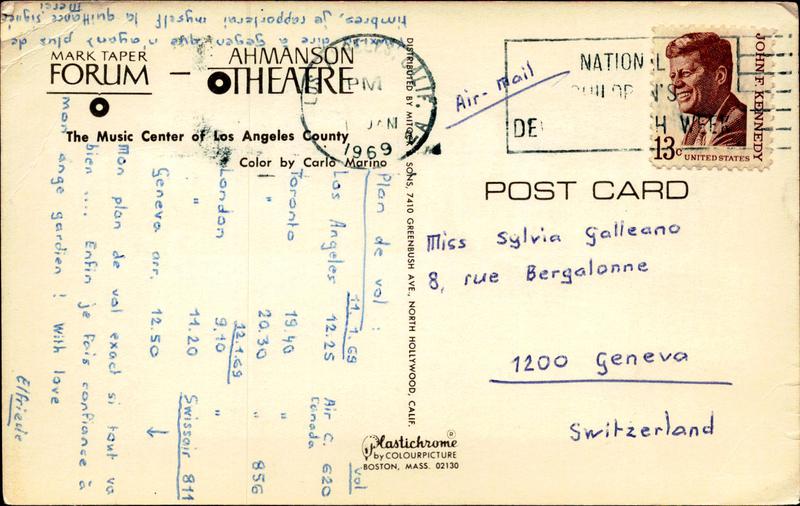 MARK TAPER
FORUM — AHMANSON
THEATRE
The Music Center of Los Angeles County
Color by Carlo Marino
PM
JAN
1969
Air-mail
NATIONAL
CHILDREN'S
DE H WEEK
JOHN F. KENNEDY
13c UNITED STATES
POST CARD
Miss Sylvia Galleano
8, rue Bergalonne
1200 Geneva
Switzerland
DISTRIBUTED BY MITOCK & SONS, 7410 GREENBUSH AVE., NORTH HOLLYWOOD, CALIF.
Plastichrome®
by COLOURPICTURE
BOSTON, MASS. 02130
Plan de vol :
11.1.69 vol
Los Angeles 12.25 Air C. 620
Canada
Toronto 19.40 "
" 20.30 " 856
12.1.69
London 9.10 "
" 11.20 Swissair 811
Geneva arr. 12.50 ↓
Mon plan de vol exact si tout va
bien .... Enfin je fais confiance à
mon ange gardien ! With love
Elfriede
dire à gegen que n'ayant plus de
timbres, je rapporterai myself la quittance signée
Merci